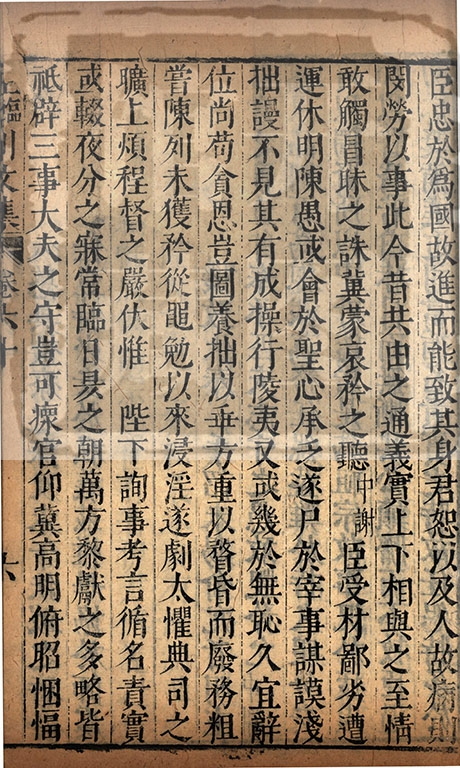 臣忠於為國故進而能致其身君恕以及人故病則
閔勞以事此今昔共由之通義實上下相與之至情
敢觸冒昧之誅兾蒙哀矜之聽中謝臣受材鄙劣遭
運休明陳愚或會於聖心承乏遂尸於宰事謀謨淺
拙謾不見其有成操行陵夷又或幾於無恥久宜辭
位尚苟貪恩豈圖養拙以乖方重以瞀昏而廢務粗
嘗陳列未獲矜從黽勉以來浸淫遂劇太懼典司之
曠上煩程督之嚴伏惟　陛下詢事考言循名責實
或輟夜分之寐常臨日昃之朝萬方黎獻之多略皆
祗辟三事大夫之守豈可瘝官仰兾高明俯昭悃愊
臨川文集　卷六十　六